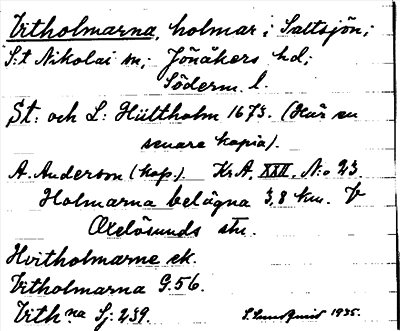 Vitholmarna, holmar i Saltsjön,
S:t Nikolai sn, Jönåkers hd,
Söderm. l.
St: och L: Hüittholm 1673. (Här en
senare kopia).
A. Anderson (kop.). Kr.A. XXII, N:o 23
Holmarna belägna 3,8 km. V
Oxelösunds stn.
Hvitholmarne ek.
Vitholmarna G.56.
Vithna Sj: 239. S. Lundqvist 1935.